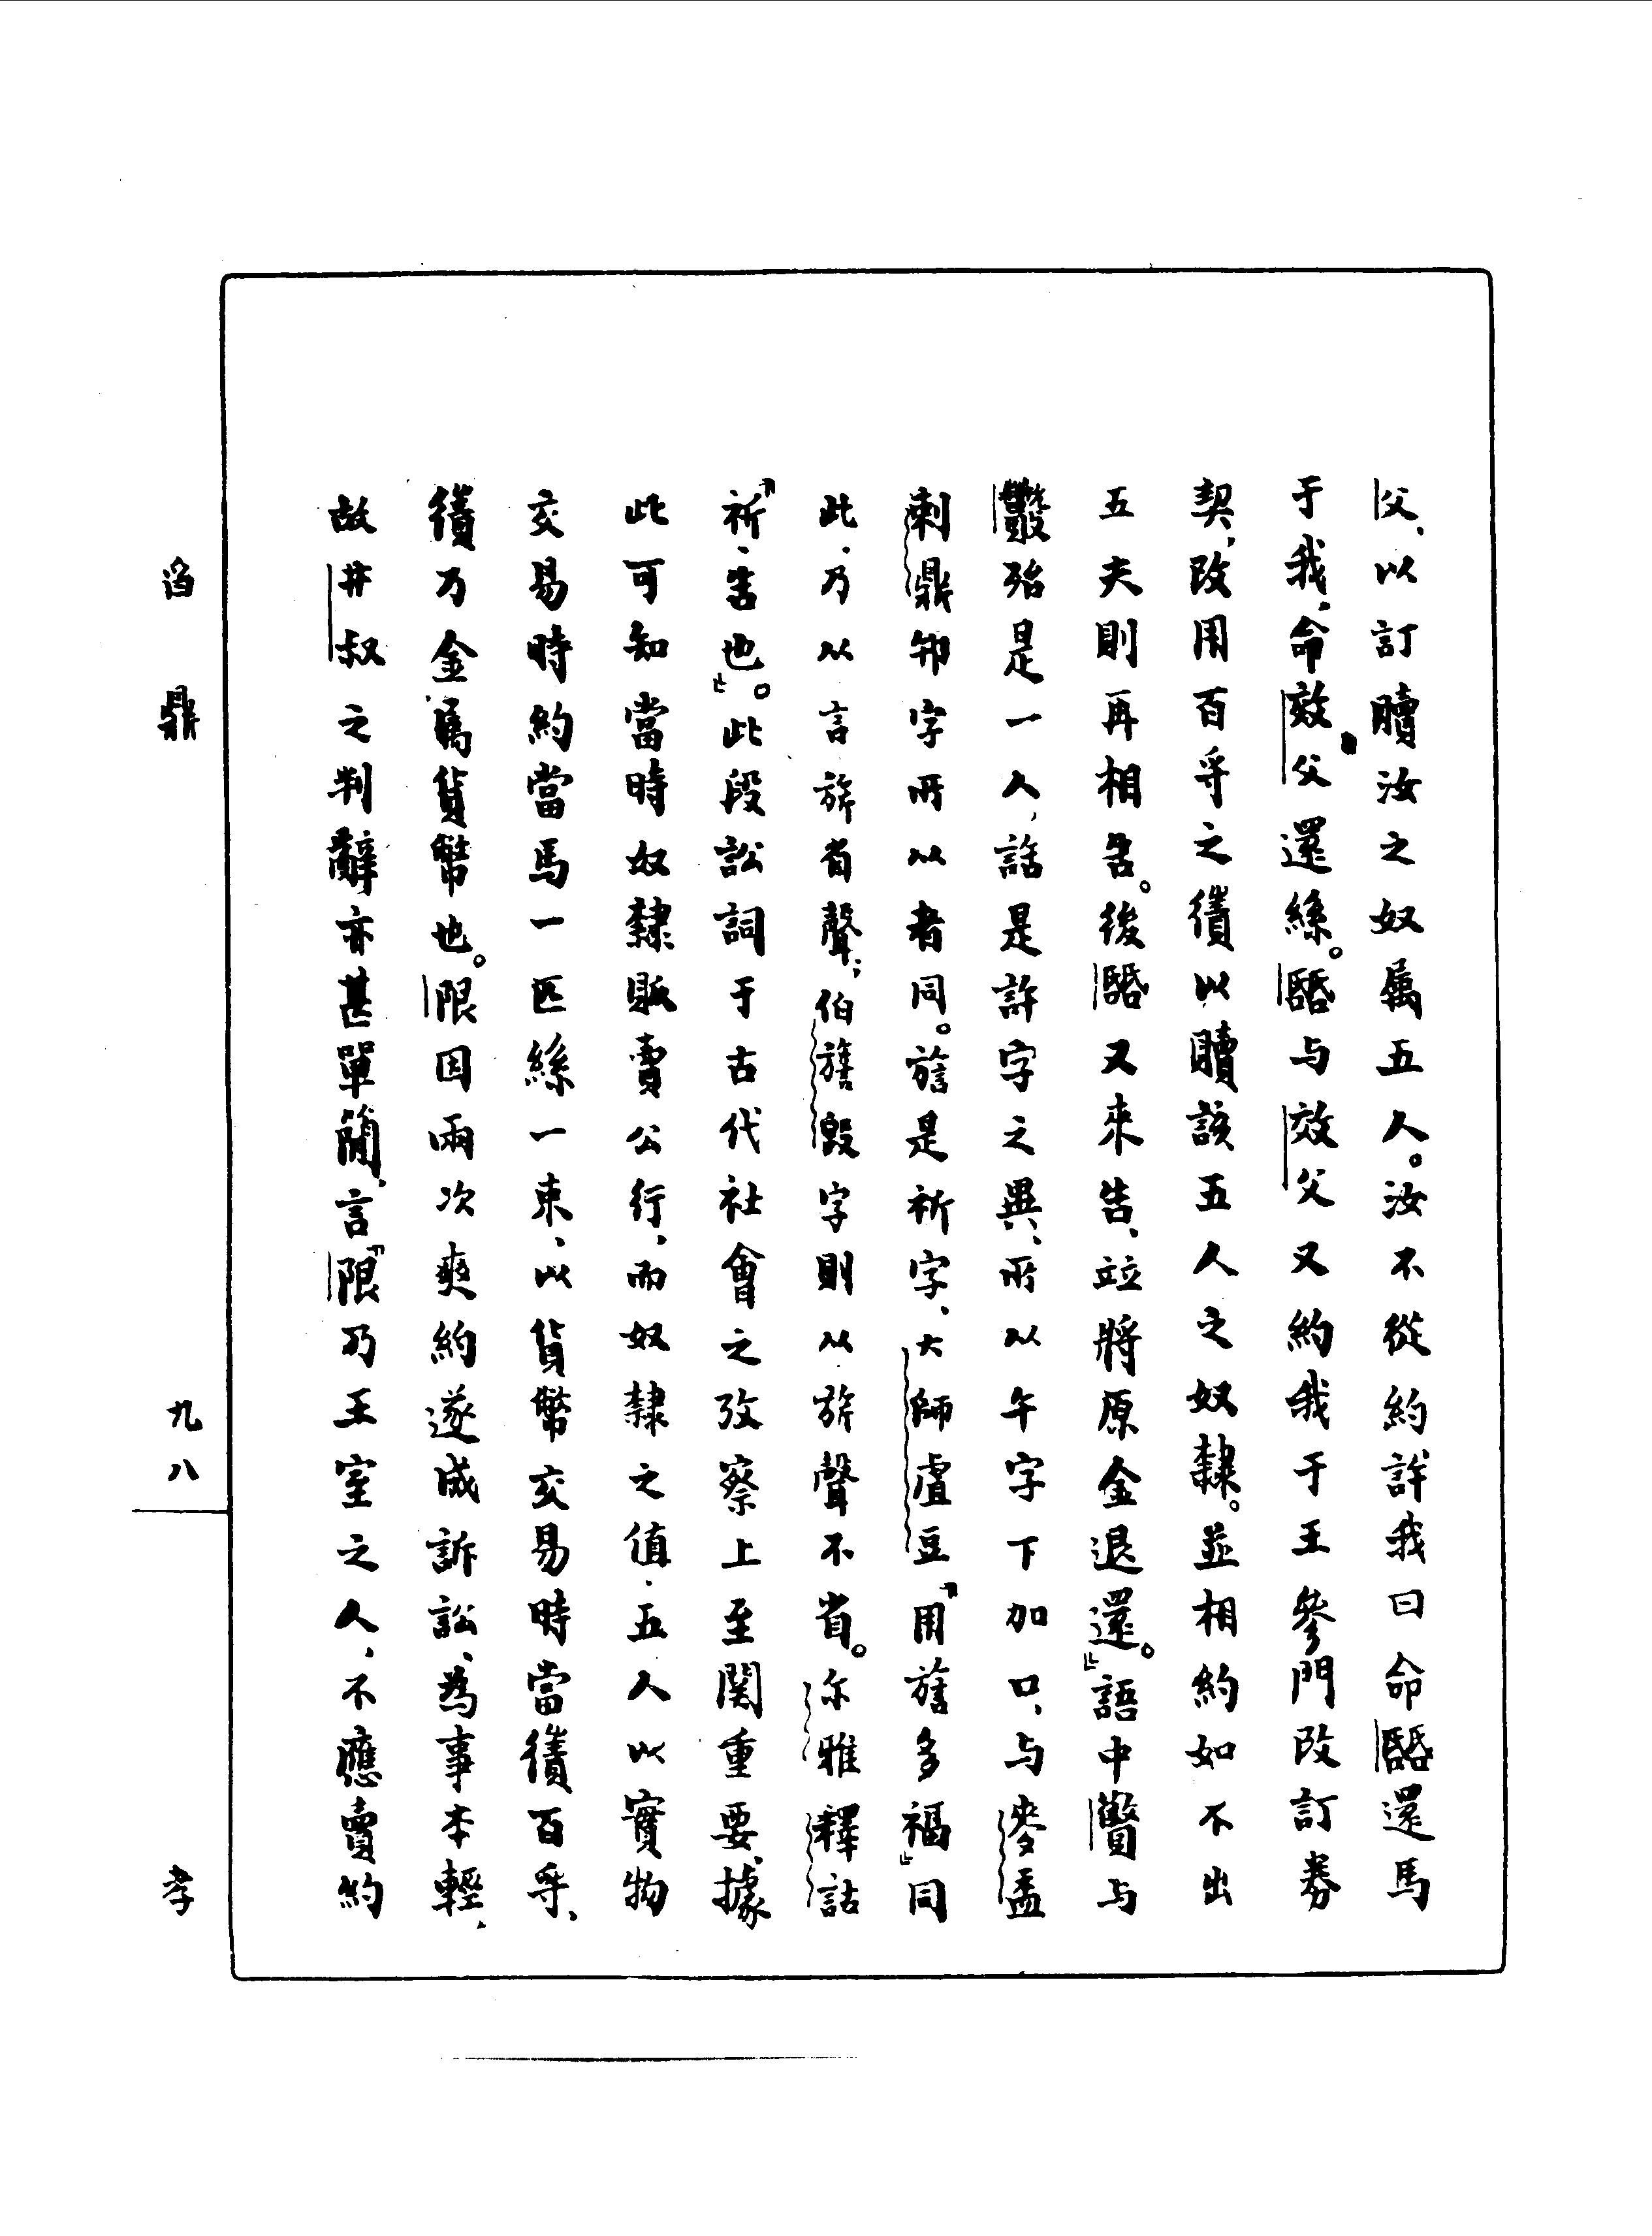 父、以訂贖汝之奴屬五人。汝不從約,許我曰命𩛥還馬
于我,命效父還絲。𩛥与效父又約我于王參門改訂券
契,改用百寽之債以贖該五人之奴隸。並相約如不出
五夫則再相告。後𩛥又來告、竝將原金退還。」語中與
殆是一人,𧧑是許字之異、所以午字下加口、与麥盉
剌鼎御字所以者同。旂是祈字、大師虘豆「用旂多福」同
此、乃从言旂省聲;伯旂毁字則从旂聲不省。尔雅釋詁
「祈、告也」。此段訟詞于古代社會之攷察上至関重要、據
此可知當時奴隸販賣公行、而奴隸之值、五人以實物
交易時約當馬一匹絲一束、以貨幣交易時當債百寽、
債乃金屬貨幣也。限因兩次爽約遂成訴訟、為事本輕、
故井叔之判辭亦甚單簡、言「限乃王室之人、不應賣約
舀鼎
九八
孝